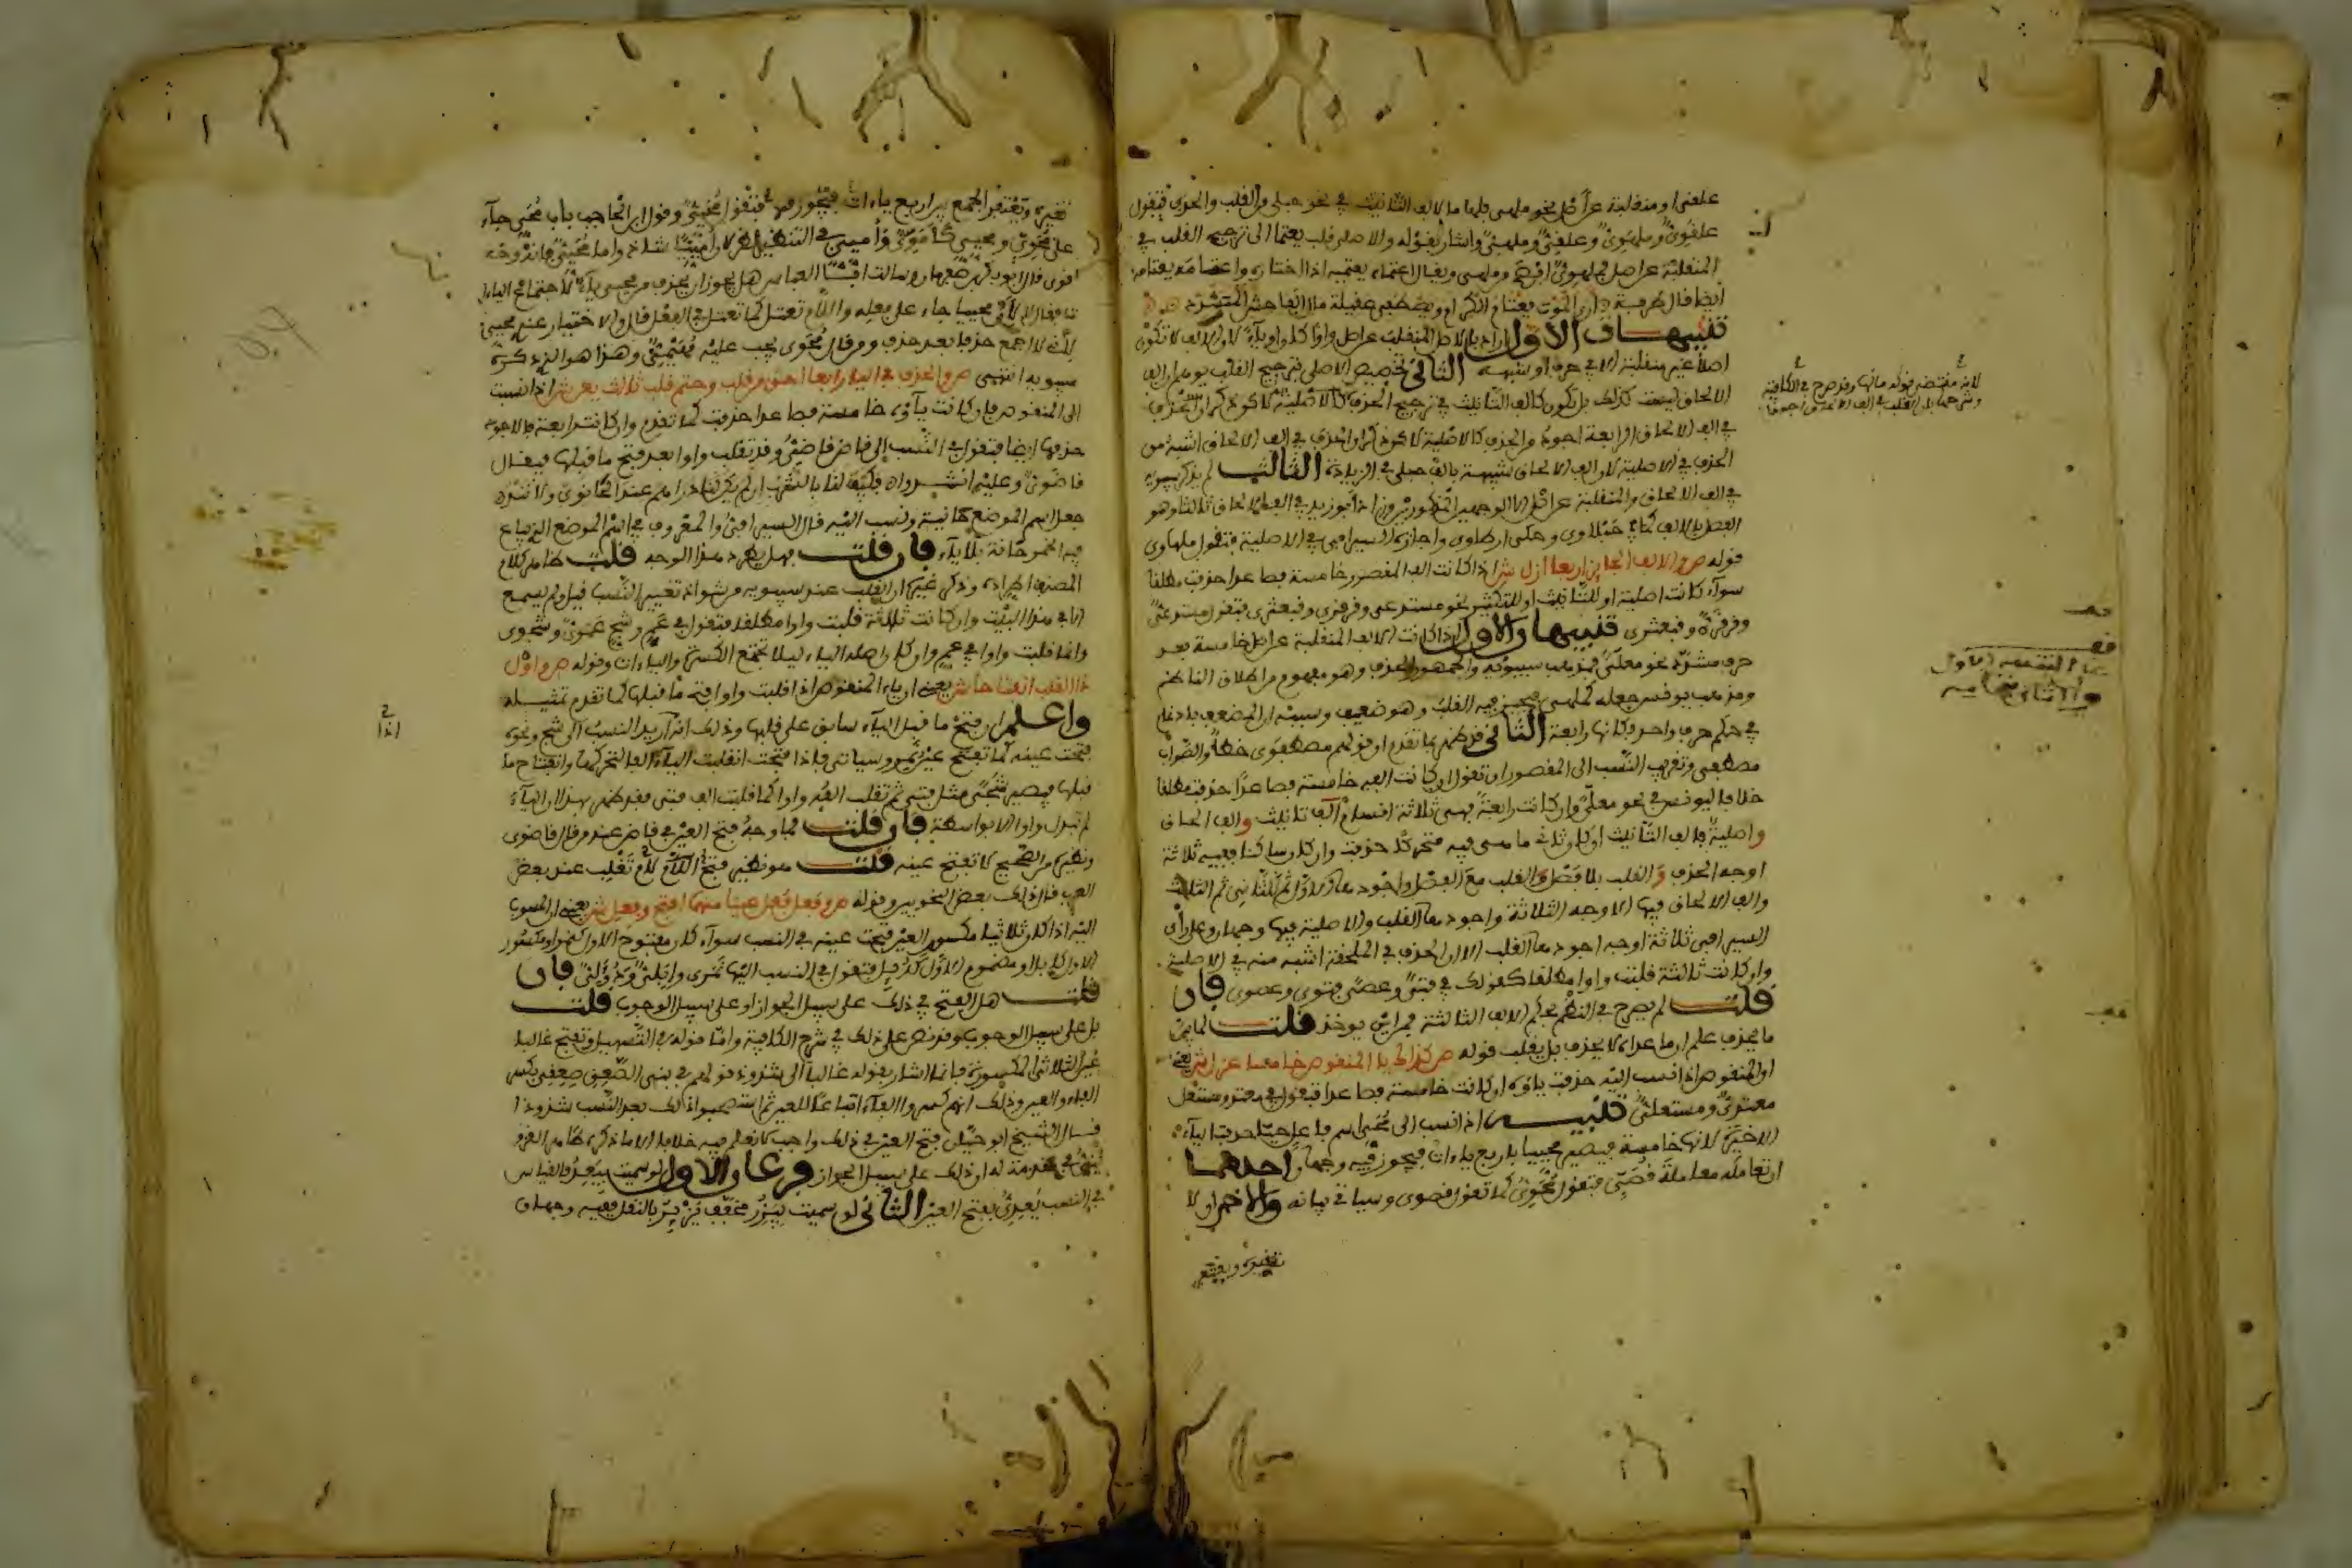 علقى او منقلبة عن اصل نحو ملهى فلها ما لالف التانيث في نحو حبلى من القلب والحذف فتقول
علقوىّ وملهوىّ وعلقىّ وملهىّ واشار بقوله وللاصلي قلب يعتما الى ترجيح القلب في
المنقلبة عن اصل فملهوىّ افصح من ملهى ويقال اعتماه يعتميه اذا اختاره واعتامه يعتامه
ايضا قال طرفة ارى الموت يعتام الكرام ويصطفي عقيلة مال الفاحش المتشدد
تنبيهات الاول اراد بالاصلي المنقلب عن اصل واو كان او ياء لان الالف لا تكون
اصلا غير منقلبة الا في حرف او شبهه الثاني تخصيص الاصلي بترجيح القلب يوهم ان الف
الالحاق ليست كذلك بل تكون كالف التانيث في ترجيح الحذف
في الف الالحاق الرابعة اجود والحذف كالاصلية لاكن ذكر ان الحذف في الف الالحاق اشبه من
الحذف في الاصلية لان الف الالحاق شبيهة بالف حبلى في الزيادة الثالث لم يذكر سيبويه
في الف الالحاق والمنقلبة عن اصل الا الوجهين المذكورين وزاد ابو زيد في الف الالحاق ثالثا وهو
الفصل بالالف كما في حبلاوي وحكى ارطاوى واجازه السيرافي في الاصلية فتقول ملهاوى
قوله ص والالف الجايز اربعا ازل ش اذا كانت الف المقصور خامسة فصاعدا حذفت مطلقا
سواء كانت اصلية او للتانيث او للتكثير نحو مستدعى وقرقرى وقبعثرى فتقول مستدعىّ
وقرقرىّ وقبعثرى تنبيهان الاول اذا كانت الالف المنقلبة عن اصل خامسة بعد
حرف مشدد نحو معلّى فمذهب سيبويه والجمهور الحذف وهو مفهوم من اطلاق الناظم
ومذهب يونس جعله كملهى فيجيز فيه القلب وهو ضعيف وسببه ان المضعف بادغام
في حكم حرف واحد فكانها رابعة الثاني قد ظهر بما تقدم ان قولهم مصطفوى خطأ والصواب
مصطفى وتقريب النسب الى المقصور ان تقول ان كانت الفه خامسة فصاعدا حذفت مطلقا
خلافا ليونس في نحو معلّى وان كانت رابعة فهي ثلاثة اقسام الف تانيث والف الحاق
واصلية فالف التانيث ان كان ثاني ما هى فيه متحركا حذفت وان كان ساكنا ففيه ثلاثة
اوجه الحذف والقلب بلا فصل والقلب مع الفصل واجودها الاول ثم الثاني ثم الثالث
والف الالحاق فيها الاوجه الثلاثة واجودها القلب والاصلية فيها وجهان وعلى راى
السيرافي ثلاثة اوجه اجودها القلب الا ان الحذف في الملحقة اشبه منه في الاصلية
وان كانت ثالثة قلبت واوا مطلقا كقولك في فتى وعصى فتوى وعصوى فان
قلت لم يصرح في النظم بحكم الالف الثالثة فمن اين يوخذ قلت لما بين
ما يحذف علم ان ما عداه لا يحذف بل يقلب قوله ص كذاك يا المنقوص خامسا عزل ش يعني
ان المنقوص اذا نسب اليه حذفت ياؤه ان كانت خامسة فصاعدا فتقول في معتد ومستعل
معتدىّ ومستعلىّ تنبيه اذا نسب الى محيى اسم فاعل حيّا حذفت الياء
الاخيرة لانها خامسة فيصير محييا باربع ياءات فيجوز فيه وجهان احدهما
ان تعامله معاملة قصىّ فتقول محوىّ كما تقول قصوى وسياتي بيانه والاخر ان لا
تغيره ويغتفر
لانه مقتضى قوله مالها وقد صرح في الكافية
وشرحها بان القلب في الف الالحاق اجود
قف
قف
هذا التنبيه الاول
والثاني
قف
تغيره ويغتفر الجمع بين اربع ياءات فتقول محييىّ وقول ابن الحاجب باب محيى جاء
على محوىّ ومحيىّ كاموىّ واميىّ
اقوى قال ابو بكر مبرمان وسالت ابا العباس هل يجوز ان يحذف من محيى ياء لاجتماع الياءات
فقال لا لان محييا جاء على فعله واللام تعتل كما تعتل في الفعل قال والاختيار عندي محييىّ
لانى لا اجمع حذفا بعد حذف ومن قال محوى يجب عليه مهيمىّ وهذا هو الذي ذكره
سيبويه انتهى ص والحذف في اليا رابعا احق من قلب وحتم قلب ثالث يعن ش اذا نسبت
الى المنقوص فان كانت ياؤه خامسة فصاعدا حذفت كما تقدم وان كانت رابعة فالاجود
حذفها ايضا فتقول في النسب الى قاض قاضىّ وقد تقلب واوا بعد فتح ما قبلها فيقال
قاضوىّ وعليه انشدوا فكيف لنا بالشرب ان لم يكن لنا دراهم عند الحانوي ولا نقد
جعل اسم الموضع حانية ونسب اليه قال السيرافي والمعروف في اسم الموضع الذي يباع
فيه الخمر حانة بلا ياء فان قلت فهل يطرد هذا الوجه قلت ظاهر كلام
المصنف اطراده وذكر غيره ان القلب عند سيبويه من شواذ تغيير النسب قيل ولم يسمع
الا في هذا البيت وان كانت ثالثة قلبت واوا مطلقا فتقول في عم وشج عموىّ وشجوى
وانما قلبت واوا في عم وان كان اصله الياء ليلا تجتمع الكسرة والياءات وقوله ص واول
ذا القلب انفتاحا ش يعني ان ياء المنقوص اذا قلبت واوا فتح ما قبلها كما تقدم تمثيله
واعلم ان فتح ما قبل الياء سابق على قلبها وذلك انه اريد النسب الى شج ونحوه
فتحت عينه كما تفتح عين نمر وسياتي فاذا فتحت انقلبت الياء الفا لتحركها وانفتاح ما
قبلها فيصير شجى مثل فتى ثم تقلب الفه واوا كما قلبت الف فتى فقد ظهر بهذا ان الياء
لم تبدل واوا الا بواسطة فان قلت فما وجه فتح العين في قاض عند من قال قاضوى
ونظيره من الصحيح لا تفتح عينه قلت هو نظير فتح اللام لام تغلب عند بعض
العرب قال ذلك بعض النحويين وقوله ص وفعل وفعل عينهما افتح وفعل ش يعني ان المنسوب
اليه اذا كان ثلاثيا مكسور العين فتحت عينه في النسب سواء كان مفتوح الاول كنمر او مكسور
الاول كابل او مضموم الاول كدئل فتقول في النسب اليها نمرى وابلىّ ودؤلىّ فان
قلت هل الفتح في ذلك على سبيل الجواز او على سبيل الوجوب قلت
بل على سبيل الوجوب وقد نص على ذلك في شرح الكافية واما قوله في التسهيل وتفتح غالبا
عين الثلاثي المكسورة فانما اشار بقوله غالبا الى شذوذ قولهم في بني الصعق صعقى بكسر
الفاء والعين وذلك انهم كسروا الفاء اتباعا للعين ثم استصحبوا ذلك بعد النسب شذوذا
قال الشيخ ابو حيان فتح العين في ذلك واجب لا نعلم فيه خلافا الا ما ذكره طاهر القزو
يني في مقدمة له ان ذلك على سبيل الجواز فرعان الاول لو سميت بيعد فالقياس
في النسب يعدىّ بفتح العين الثاني لو سميت بيزر مخفف يزئر بالنقل ففيه وجهان
اذا